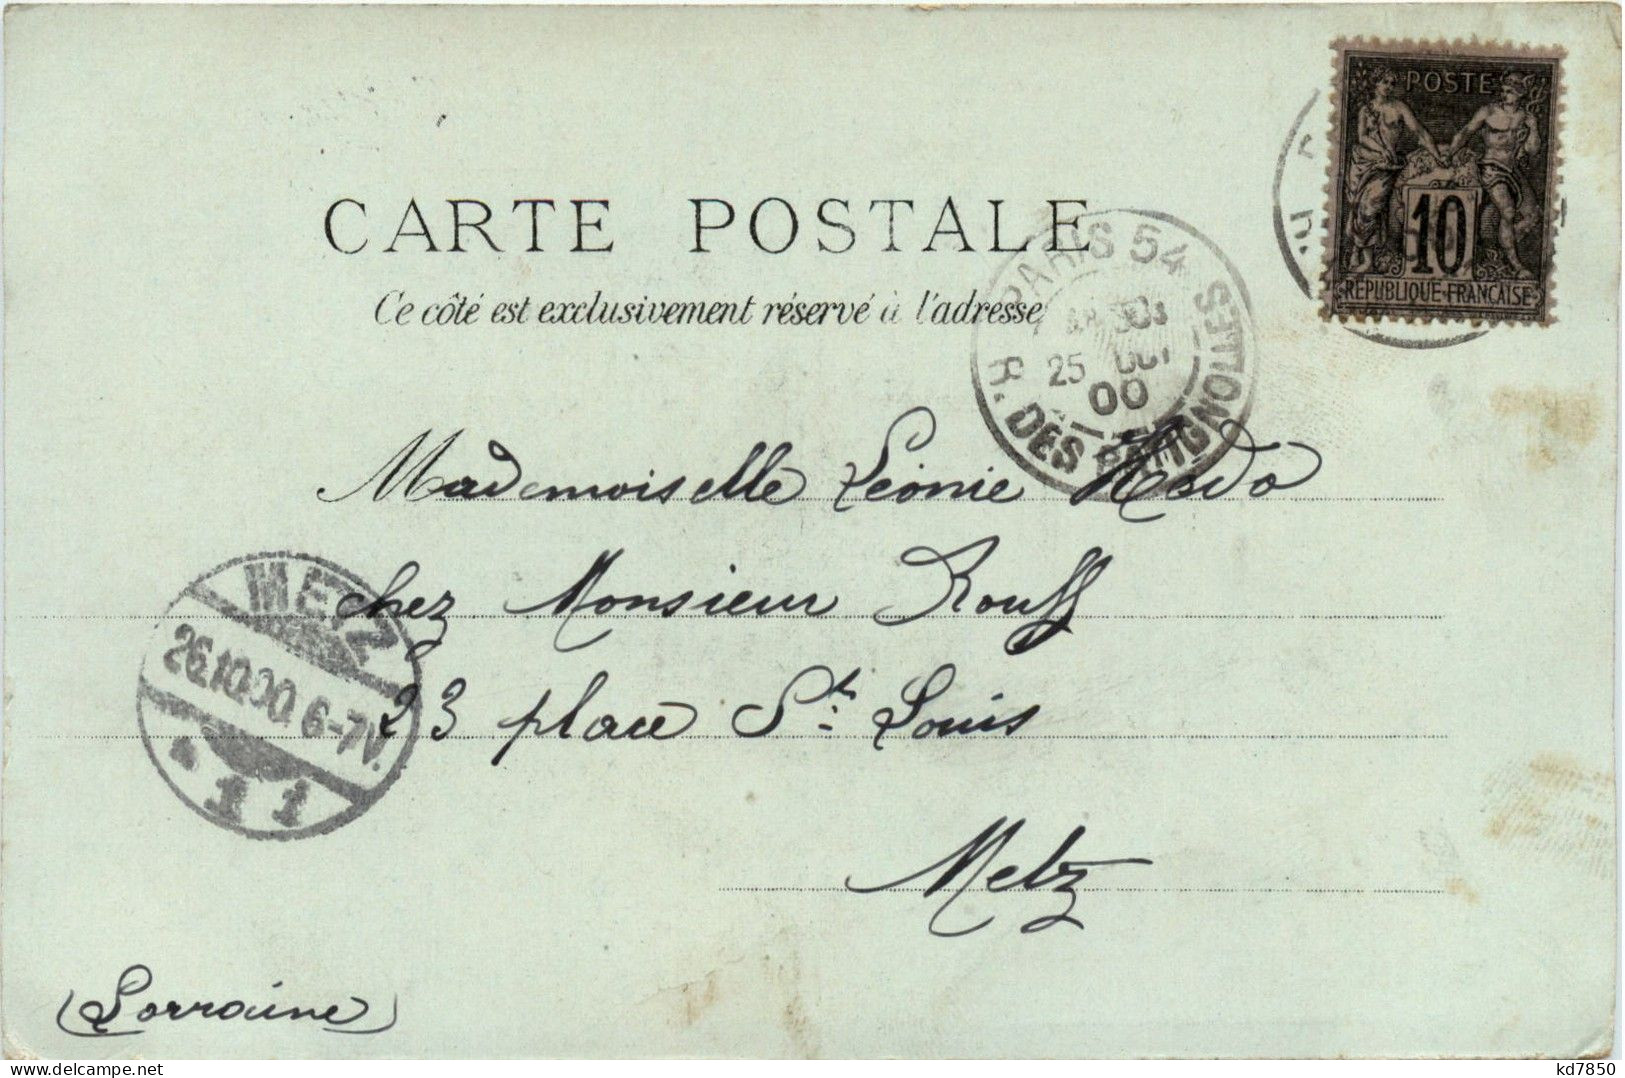 POSTE
10
REPUBLIQUE FRANÇAISE
CARTE POSTALE
Ce côté est exclusivement réservé à l'adresse
PARIS 54
25 OCT
00
R. DES BATIGNOLLES
Mademoiselle Léonie
chez Monsieur Rouff
23 place St. Louis
Metz
(Lorraine)
METZ
26.10.00. 6-7N.
1 1
delcampe.net
kd7850